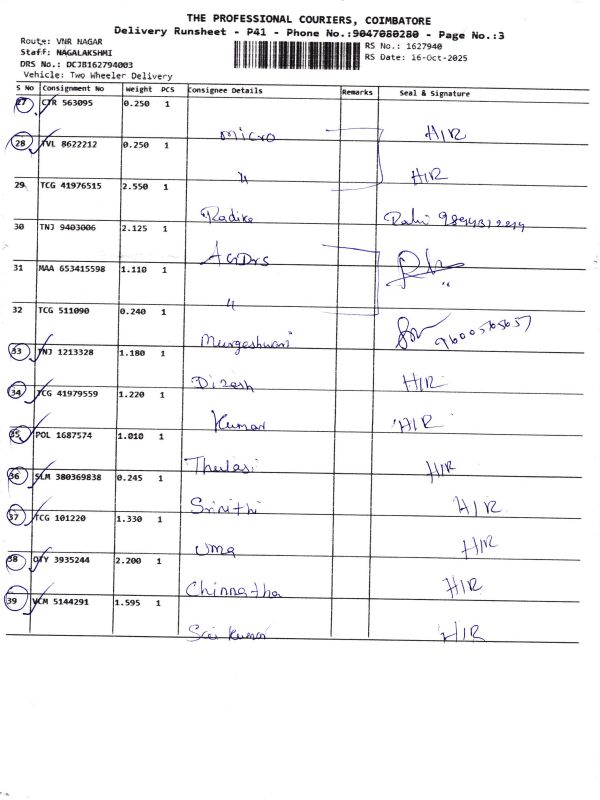 THE PROFESSIONAL COURIERS, COIMBATORE
Delivery Runsheet - P41 - Phone No.:9047080280 - Page No.:3
Route: VNR NAGAR
Staff: NAGALAKSHMI
DRS No.: DCJB162794003
Vehicle: Two Wheeler Delivery
RS No.: 1627940
RS Date: 16-Oct-2025
S No Consignment No Weight PCS Consignee Details Remarks Seal & Signature
27 CTR 563095 0.250 1
Micro H/R
28 TVL 8622212 0.250 1
" H/R
29 TCG 41976515 2.550 1
Radike
30 TNJ 9403006 2.125 1
31 MAA 653415598 1.110 1
"
32 TCG 511090 0.240 1
Murgeshwari
33 TNJ 1213328 1.180 1
Dinesh H/R
34 TCG 41979559 1.220 1
Kumar H/R
35 POL 1687574 1.010 1
Thulasi H/R
36 SLM 380369838 0.245 1
Srinithi H/R
37 TCG 101220 1.330 1
Uma H/R
38 OTY 3935244 2.200 1
Chinnatha H/R
39 VCM 5144291 1.595 1
Sai Kumar H/R